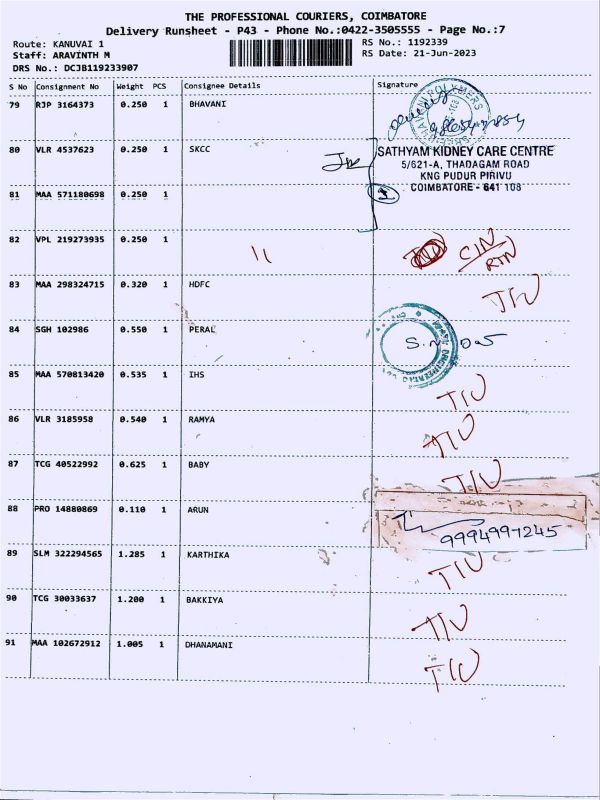 THE PROFESSIONAL COURIERS, COIMBATORE
Delivery Runsheet - P43 - Phone No.:0422-3505555 - Page No.:7
Route: KANUVAI 1 RS No.: 1192339
Staff: ARAVINTH M RS Date: 21-Jun-2023
DRS No.: DCJB119233907
S No Consignment No Weight PCS Consignee Details Signature
79 RJP 3164373 0.250 1 BHAVANI
80 VLR 4537623 0.250 1 SKCC
SATHYAM KIDNEY CARE CENTRE
5/621-A, THADAGAM ROAD
KNG PUDUR PIRIVU
COIMBATORE - 641 108
81 MAA 571180698 0.250 1
82 VPL 219273935 0.250 1
83 MAA 298324715 0.320 1 HDFC
84 SGH 102986 0.550 1 PERAL
85 MAA 570813420 0.535 1 IHS
86 VLR 3185958 0.540 1 RAMYA
87 TCG 40522992 0.625 1 BABY
88 PRO 14880869 0.110 1 ARUN
9994997245
89 SLM 322294565 1.285 1 KARTHIKA
90 TCG 30033637 1.200 1 BAKKIYA
91 MAA 102672912 1.005 1 DHANAMANI